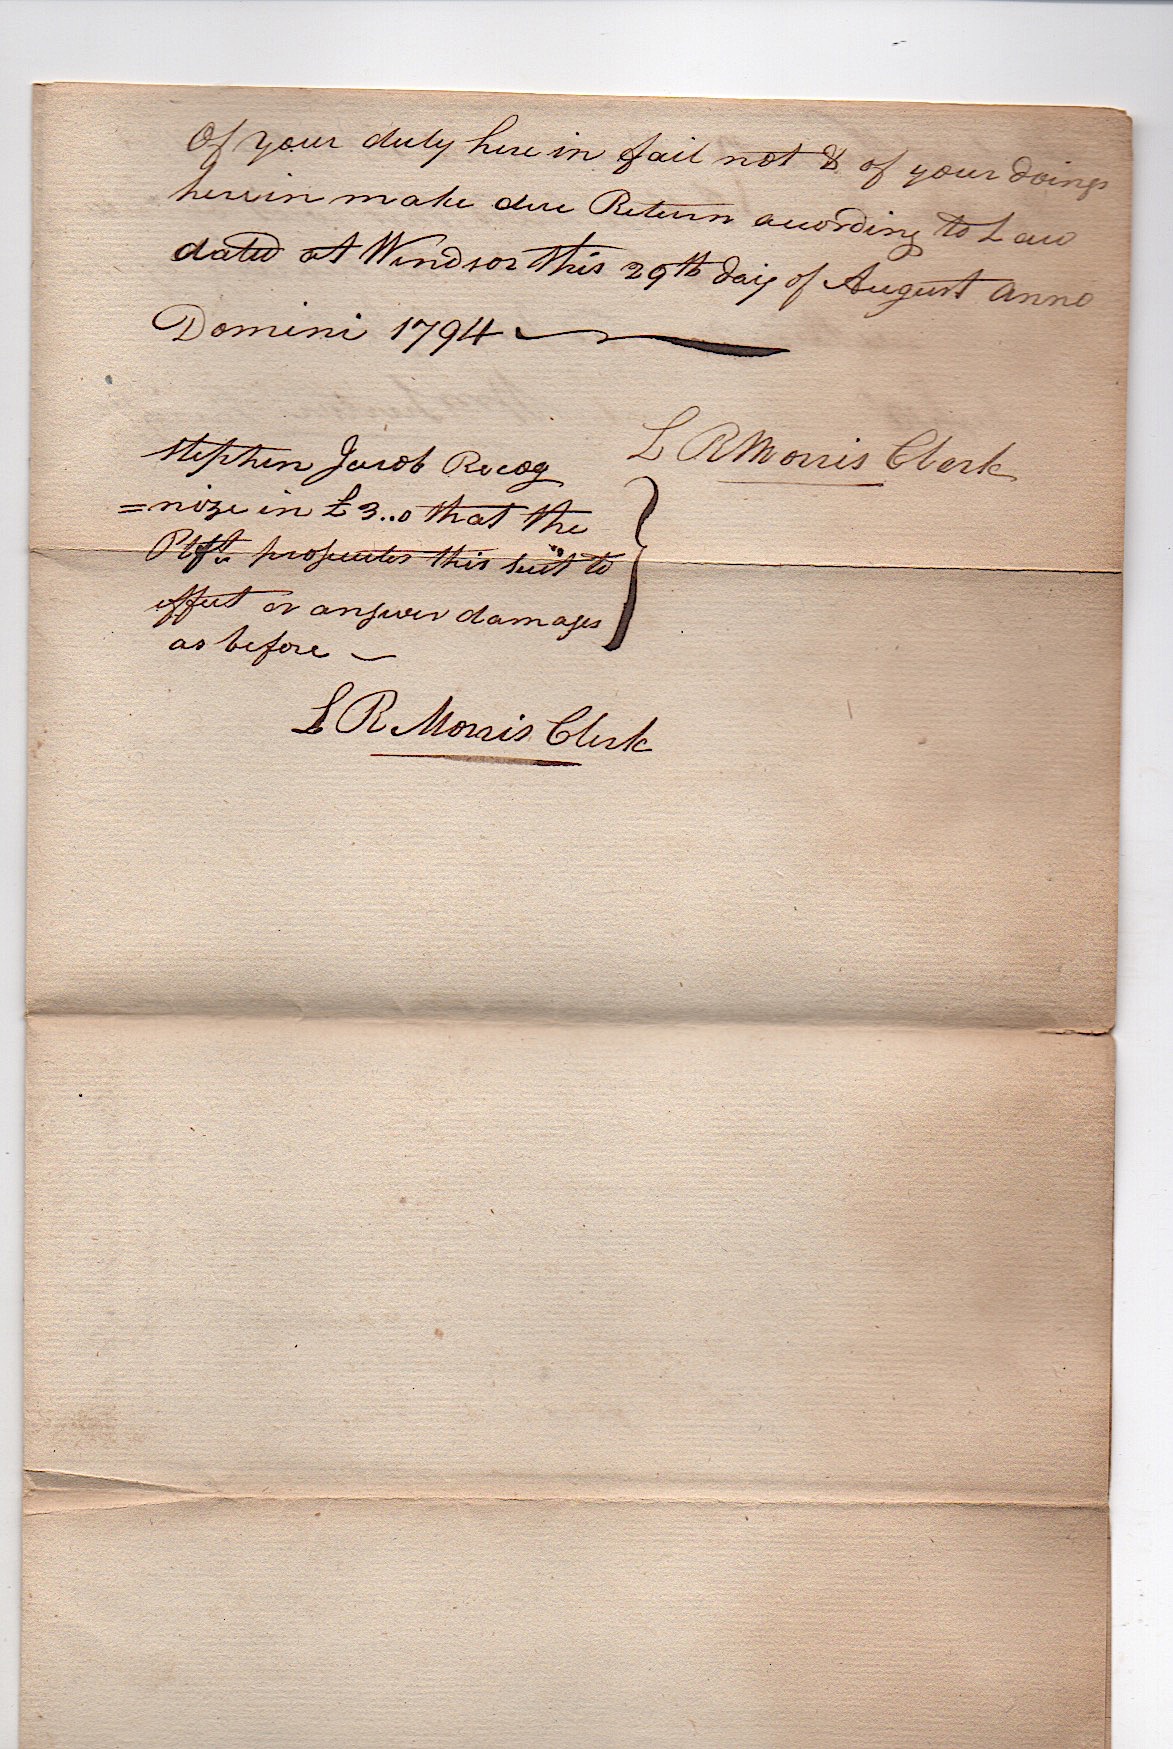 Of your duty here in fail not & of your doings
herein make due Return according to Law
dated at Windsor this 29th day of August anno
Domini 1794
L R Morris Clerk
Stephen Jacob Recog
=nize in £3..0 that the
Pltff prosecutes this suit to
effect or answer damages
as before
L R Morris Clerk